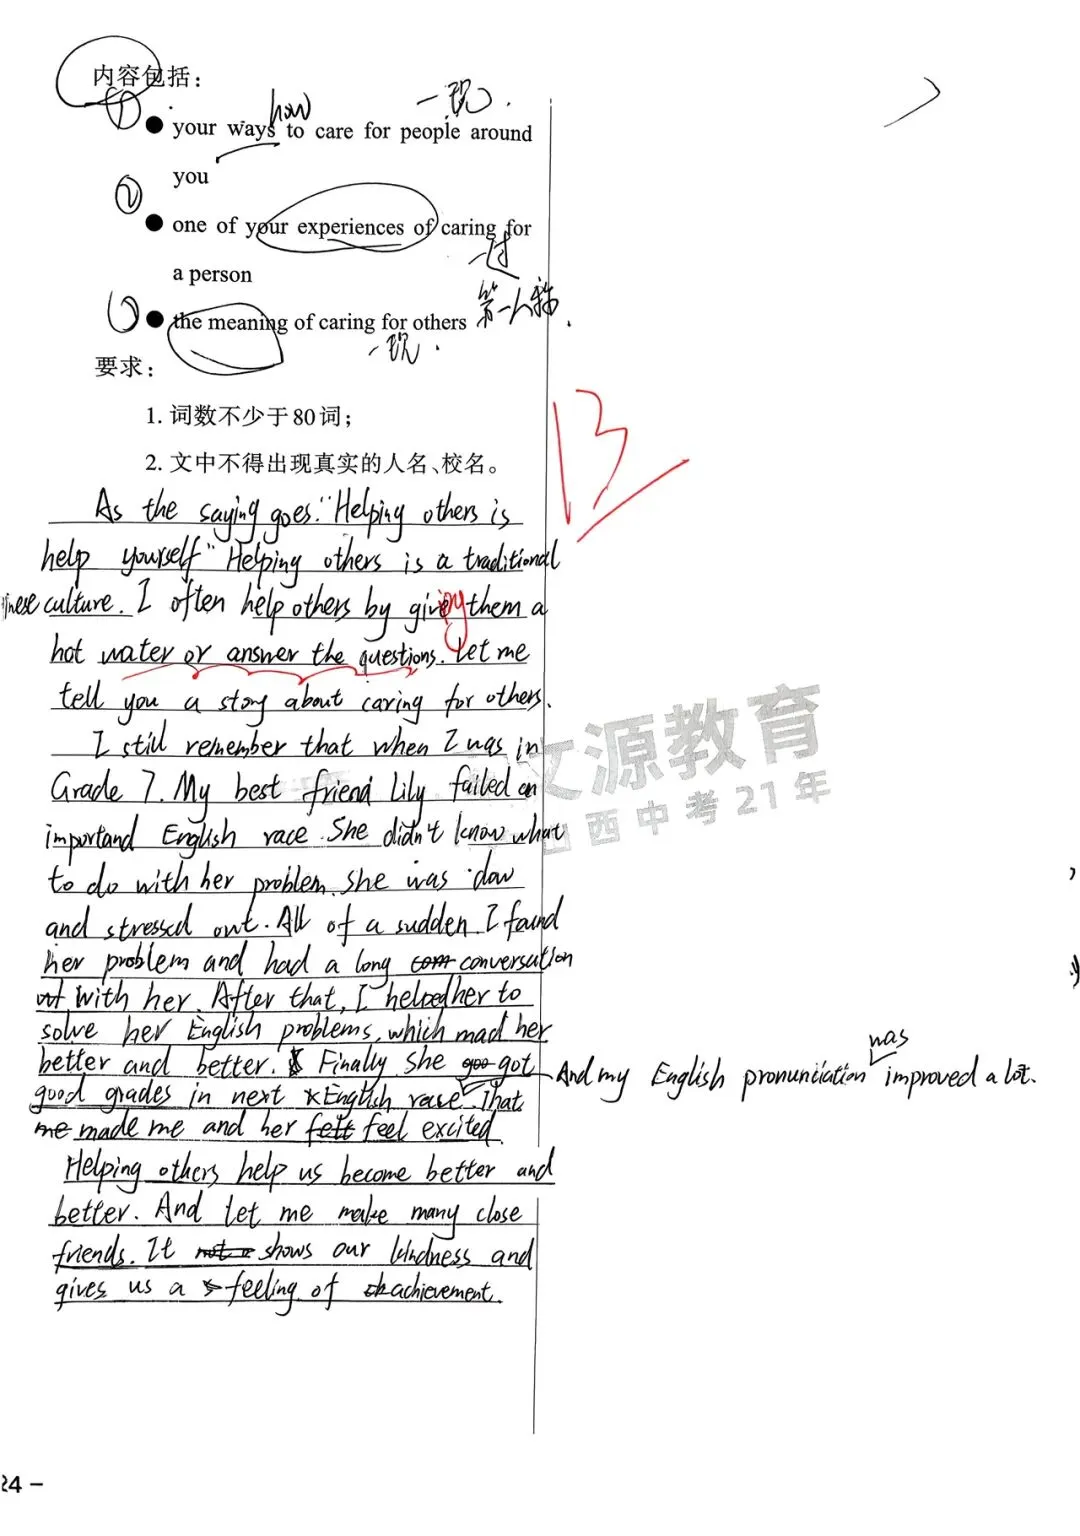 内容包括：
① how 一现.
● your ways to care for people around
you
②
● one of your experiences of caring for
一过
a person
第一人称.
③ ● the meaning of caring for others
一现.
要求：
1. 词数不少于80词；
2. 文中不得出现真实的人名、校名。
13
As the saying goes: "Helping others is
help yourself" Helping others is a traditional
inese culture. I often help others by giving them a
hot water or answer the questions. Let me
tell you a story about caring for others.
I still remember that when I was in
Grade 7. My best friend Lily failed an
importand English race. She didn't know what
to do with her problem. She was dow
and stressed out. All of a sudden I found
her problem and had a long conversation
with her. After that, I helped her to
solve her English problems, which mad her
better and better. Finally she got
good grades in next English race. And my English pronuniiation was improved a lot. That
made me and her feel excited.
Helping others help us become better and
better. And let me make many close
friends. It shows our kindness and
gives us a feeling of achievement.
文源教育
山西中考21年
24 -